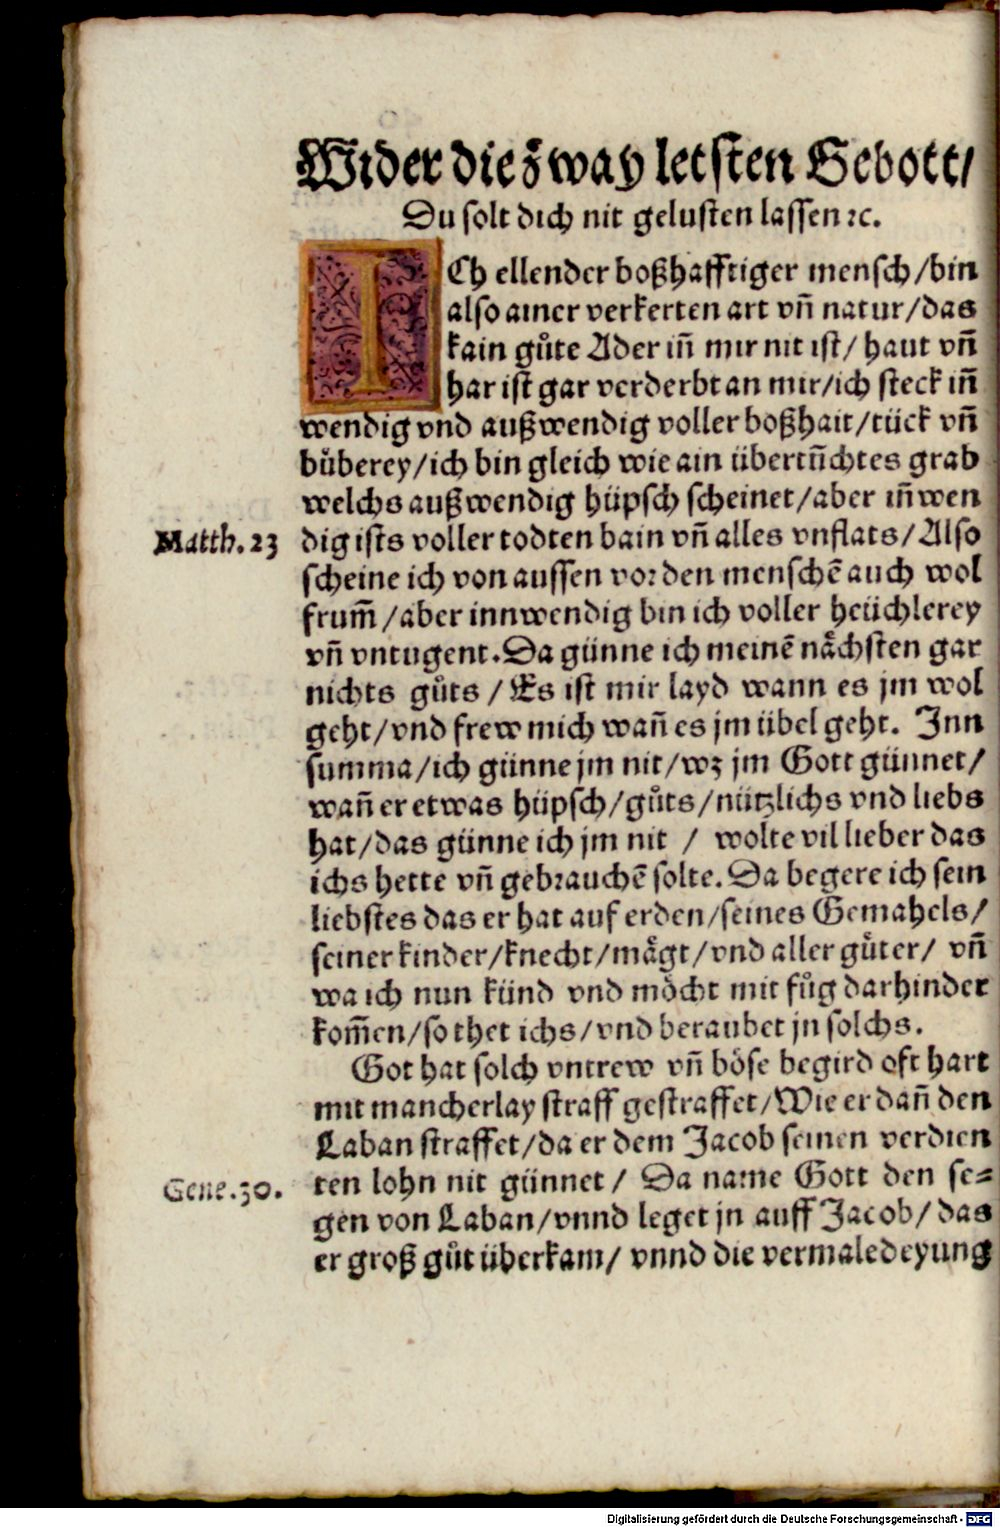 Wider die zway letsten Gebott/
Du solt dich nit gelusten lassen ꝛc.
ICh ellender boßhafftiger mensch/bin
also ainer verkerten art vn̄ natur/das
kain gůte Ader in̄ mir nit ist/ haut vn̄
har ist gar verderbt an mir/ich steck in̄
wendig vnd außwendig voller boßhait/tück vn̄
bůberey/ich bin gleich wie ain übertün̄chtes grab
welchs außwendig hüpsch scheinet/aber in̄wen
Matth. 23
dig ists voller todten bain vn̄ alles vnflats/Also
scheine ich von aussen vor den menschē auch wol
frum̄/aber innwendig bin ich voller heüchlerey
vn̄ vntugent. Da günne ich meinē nåchsten gar
nichts gůts / Es ist mir layd wann es jm wol
geht/vnd frew mich wan̄ es jm übel geht. Inn
summa/ich günne jm nit/wz jm Gott günnet/
wan̄ er etwas hüpsch/gůts/nützlichs vnd liebs
hat/das günne ich jm nit / wolte vil lieber das
ichs hette vn̄ gebrauchē solte. Da begere ich sein
liebstes das er hat auf erden/seines Gemahels/
seiner kinder/knecht/mågt/vnd aller gůter/ vn̄
wa ich nun künd vnd möcht mit fůg darhinder
kom̄en/so thet ichs/vnd beraubet jn solchs.
Got hat solch vntrew vn̄ böse begird oft hart
mit mancherlay straff gestraffet/Wie er dan̄ den
Laban straffet/da er dem Jacob seinen verdien
Gene. 30.
ten lohn nit günnet/ Da name Gott den se=
gen von Laban/vnnd leget jn auff Jacob/ das
er groß gůt überkam/ vnnd die vermaledeyung
Digitalisierung gefördert durch die Deutsche Forschungsgemeinschaft - DFG